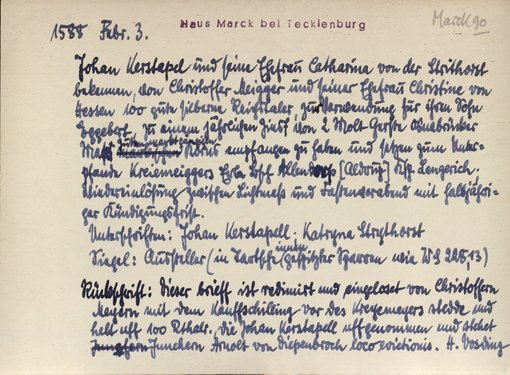 1588 Febr. 3.
Haus Marck bei Tecklenburg
Marck 90
Johan Kerstapel und seine Ehefrau Catharina von der Struthorst
bekennen, von Christoffer Meigger und seiner Ehefrau Christine von
Hessen 100 gute silberne Reichstaler zur Verwendung für ihren Sohn
Eggebert, zu einem jährlichen Zins von 2 Molt Gerste Osnabrücker
Maß Korns empfangen zu haben und setzen zum Unter-
pfande Kreiemeiggers Erbe Dorf Aldendorp [Aldrup] Ksp. Lengerich,
Wiedereinlösung zwischen Lichtmeß und Fastenavend mit halbjähri-
ger Kündigungsfrist.
Unterschriften: Johan Kerstapell: Katryna Strythorst
Siegel: Aussteller (in Tartsche innen gespitzter Sparren wie WS 225,13)
Rückschrift: Dieser brieff ist redimirt und eingeloset von Christoffern
Meyern mit dem Kauffschilling vor des Kreyemeyers stedde und
helt uff 100 Rthalr. die Johan Kerstapell uffgenommen und stehet
Junchern Arnolt von Diepenbroch loco evictionis. H. Vosding